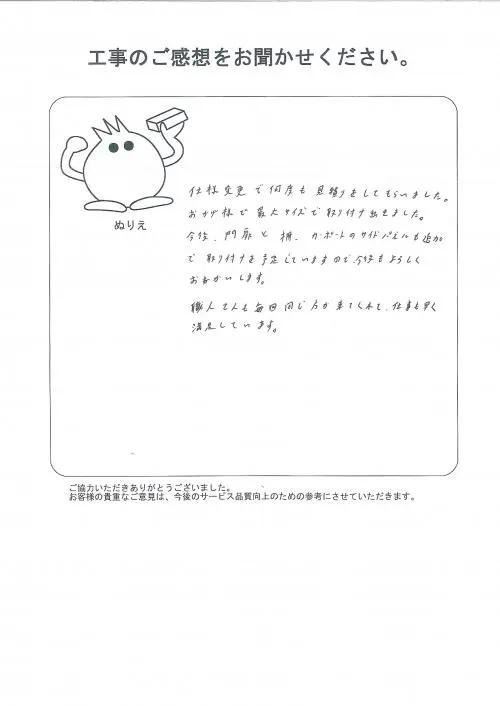 工事のご感想をお聞かせください。
ぬりえ
仕様変更で何度も見積りをしてもらいました。
おかげ様で最大サイズで取り付け出来ました。
今後、門扉と柵、カーポートのサイドパネルも追加
で取り付けを予定していますので、今後もよろしく
おねがいします。
職人さんも毎回同じ方が来てくれて、仕事も早く
満足しています。
ご協力いただきありがとうございました。
お客様の貴重なご意見は、今後のサービス品質向上のための参考にさせていただきます。